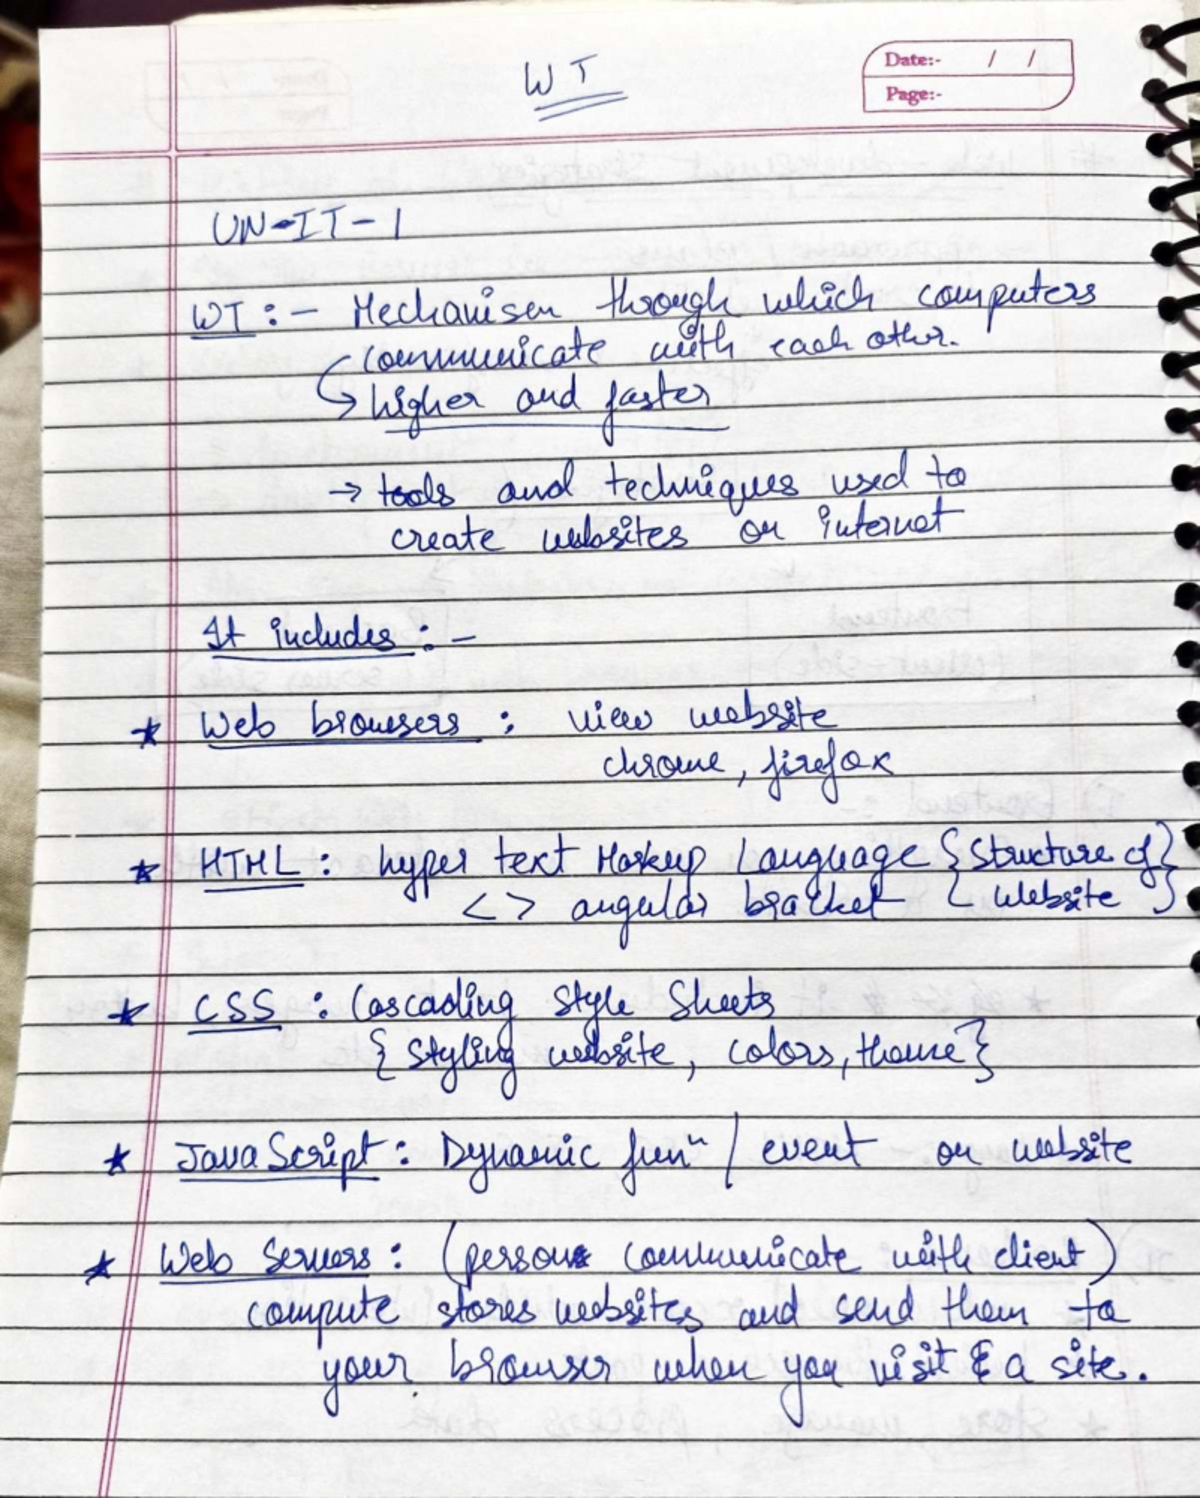 WT
Date:- / /
Page:-
UN-IT-1
WT :- Mechanisem through which computers
communicate with each other.
↳ higher and faster
→ tools and techniques used to
create websites or internet
It includes :-
* Web browsers : view website
chrome, firefox
* HTML : hyper text Markup Language {structure of}
< > angular bracket { website }
* CSS : Cascading Style Sheets
{ styling website, colors, theme }
* JavaScript : Dynamic funⁿ / event on website
* Web Servers : (person communicate with client)
compute stores websites and send them to
your browser when you visit a site.